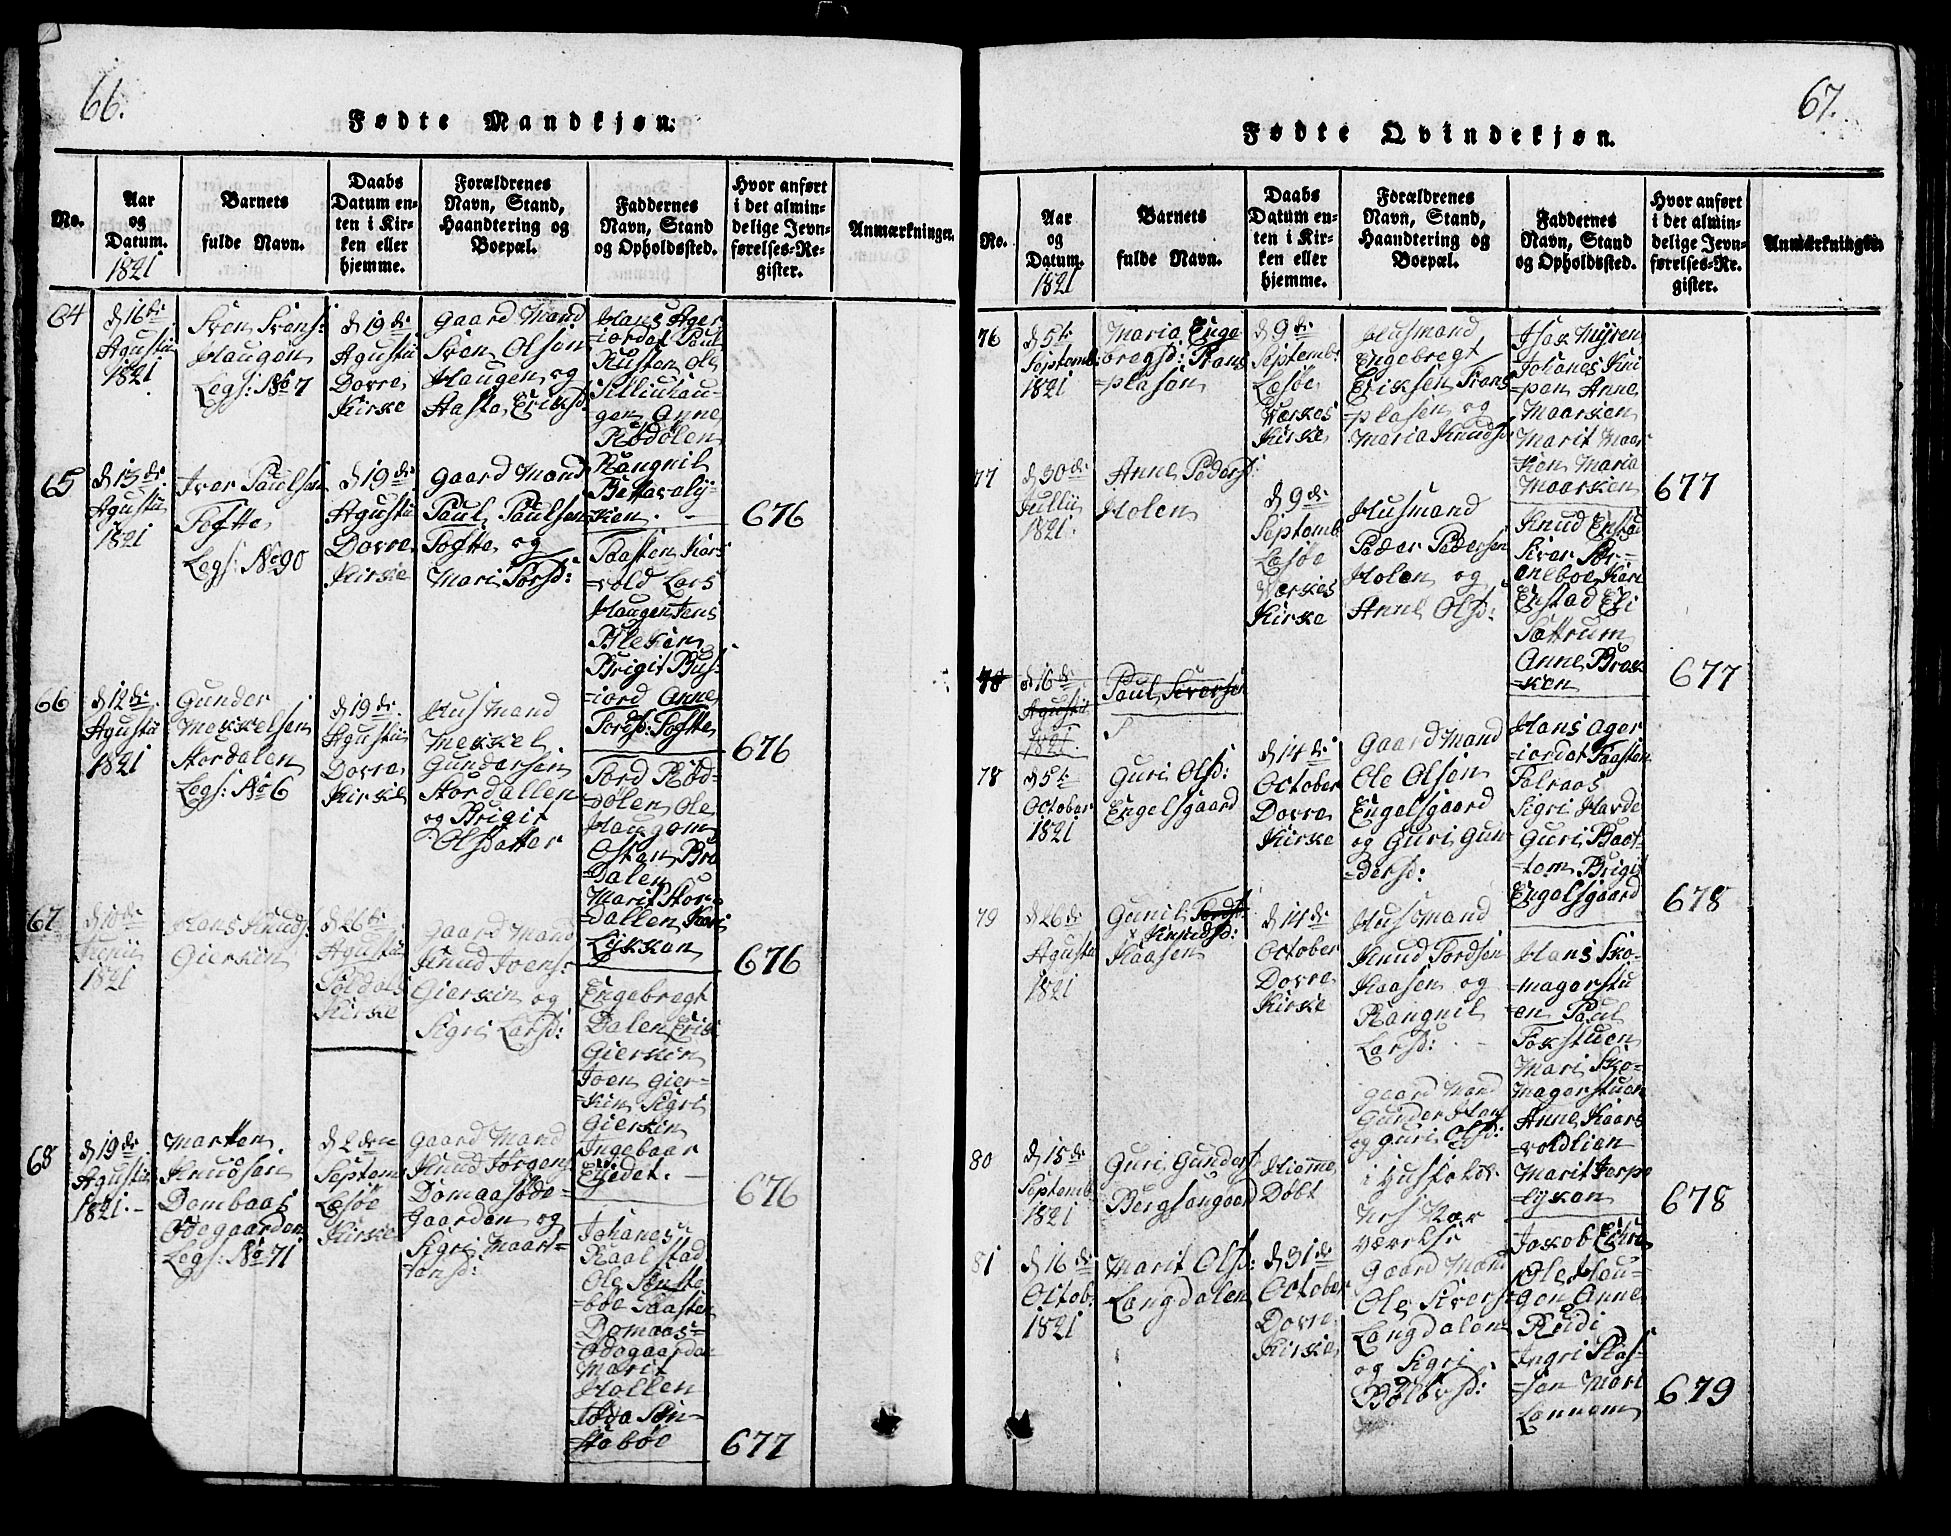 66.
Fødte Mandkjøn.
No.
Aar
og
Datum.
1821
Barnets
fulde Navn.
Daabs
Datum en-
ten i Kir-
ken eller
hjemme.
Forældrenes
Navn, Stand,
Haandtering og
Boepæl.
Faddernes
Navn, Stand
og Opholdssted.
Hvor anført
i det almin-
delige Jevn-
førelses-Re-
gister.
Anmærkninger.
64
d 16de
Agustii
1821
Sven Svens:
Haugøn
Legs: No 7
d 19de
Agustii
Dovre
Kirke
Gaard Mand
Sven Olsøn
Haugen og
Aaste Eriksd:
Hans Ager
iordet Paul
Rusten Ole
Gen Anne
Rødølen
Rangnil
ken.
676
65
d 13de
Agustii
1821
Iver Paulsen
Tofte
Legs: No 90
d 19de
Agustii
Dovre
Kirke
Gaard Mand
Paul Paulsen
Tofte og
Mari Torsd:
Paasten Kors
=vold Lars
Haugen Jens
Blekøn
Brigit Bus-
=iord Anne
Tordsd: Tofte
676
66
d 12de
Agustii
1821
Gunder
Mekkelsen
Stordalen
Legs: No 6
d 19de
Agustii
Dovre
Kirke
Hus Mand
Mekkel
Gundersen
Stordallen
og Brigit
Olsdatter
Tord Rød-
=dølen Ole
Haugøn
Osten Bro
Dalen
Marit Stor=
=dallen Kari
Lykkøn
676
67
d 10de
Junii
1821
Hans Knuds:
Gierkin
d 26de
Agustii
Kirke
Gaard Mand
Knud Joens:
Gierkin og
Sigri Larsd:
Engebregt
Dalen Erik
Gierkin
Joen Gier-
=kin Sigri
Gierkin
Ingebaar
Eydet.
676
68
d 19de
Agustii
1821.-
Marten
Knudsen
Dombaas
Ødegaarden
Legs: No 71
d 2den
Septem
Lesøe
Kirke
Gaard Mand
Knud Jørgens
Domaasøde=
Gaarden og
Sigri Maar=
tensd:
Johanes
Raalstad
Ole Sønste
=bøe Paasten
Domaas=
Ødegaarden
Marit
Hallen
Tøda Søn
stebøe
677
67.
Fødte Qvindekjøn.
No.
Aar
og
Datum.
1821
Barnets
fulde Navn.
Daabs
Datum en-
ten i Kir-
ken eller
hjemme.
Forældrenes
Navn, Stand,
Haandtering og
Boepæl.
Faddernes
Navn, Stand
og Opholdssted.
Hvor anført
i det almin-
delige Jevn-
førelses-Re-
gister.
Anmærkninger.
76
d 5te
Septemb
1821
Maria Enge
bregsd: Trans
=plasøn
d 9de
Septembr
Lesøe
Værkes
Kirke
Husmand
Engebregt
Eriksen Trans
=plasen og
Maria Knudsd
Isak Myren
Johanes Kni
=pen Anne
Maarken
Marit Maar
Ken Maria
Maarken
677
77
d 30de
Jullii
1821.
Anne Pedersd:
Holen
d 9de
Septemb
Lesøe
Værkes
Kirke
Husmand
Peder Pedersen
Holen og
Anne Olsd:
Knud Enstad
Siver Tor-
=eneboe Kari
Enstad Eli
Sættrum
Anne Brek
=ken
677
78
d 16de
Agustii
1821.
Paul Siversen
78
d 5te
October
1821
Guri Olsd:
Engelsgaard
d 14de
October
Dovre
Kirke
Gaard Mand
Ole Olsøn
Engelsgaard
og Guri Gun
=dersd:
Hans Ager
iordet Paasten
Talraas
Sigri Harde
Guri Baat-
=tom Brigit
Engelsgaard
678
79
d 26de
Agustii
1821
Gunil Tordsd:
x Knudsd:
Kaasen
d 14de
October
Dovre
Kirke
Husmand
Knud Tordsen
Kaasen og
Rangnil
Larsd:
Hans Sko-
=magerstu
=en Paul
Fokstuen
Mari Sko-
Magerstuen
Anne Kaars
voldlien
Marit Jorpe
=lykøn
678
80
d 15de
Septemb
1821
Guri Gundersd
Bergsengaard
Hiemme
Døbt
Gaard Mand
Gunder Hans
og Guri Olsd:
Værelse
Jakob
81
d 16de
Octob.
1821
Marit Olsd:
Langdalen
d 31de
October
Dovre
Kirke
Gaard Mand
Ole Siverse
Langdalen
og Sigri
Bottolvsd:
Ole Hau-
=gen Anne
Rudi
Ingri Slas-
=søn Mari
Lannem
679